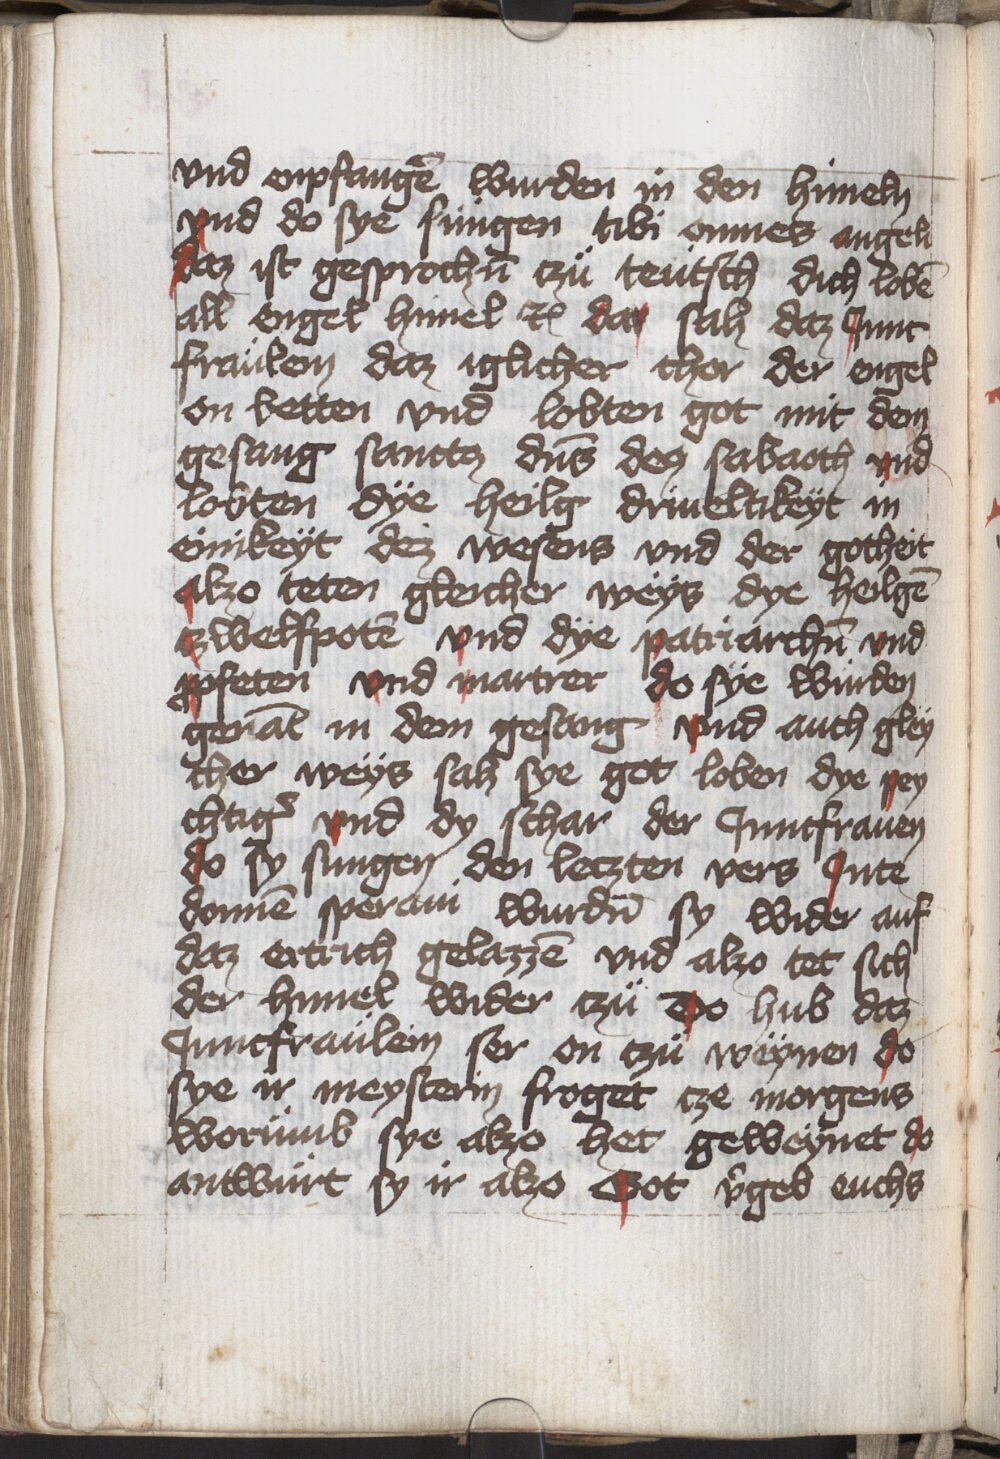 vnd enpfangē wurden in den himeln
vnd do sye sungen tibi omnes angeli
daz ist gesprochn̄ tzü teütsch dich lobē
all engel himel ꝛc da sah daz Junc
fraülein daz iglicher chor der engel
on betten vnd lobten got mit dem
gesang sanctꝫ dn̄s deꝫ sabaoth vnd
lobten dÿe heilg driueltikeÿt in
einikeÿt dez wesens vnd der gotheit
alzo teten gleicher weÿs dye heilgē
tzwelfpotē vnd dÿe patriarchn̄ vnd
ꝓpfeten vnd martrer do sÿe würden
genāt in dem gesang vnd auch gleÿ
cher weÿs sah sye got loben dye pey
chtigᵉʳ vnd dy schar der Juncfrauen
do sy sungen den letzten vers Jn te
domīe speraui wurdn̄ sy wider auf
daz ertrich gelazzē vnd alzo tet sich
der himel wider tzü Do hub daz
Juncfraülein ser on tzü weÿnen do
sye ir meysterin froget tze morgens
worümb sye alzo het geweÿnet do
antwürt sy ir alzo Got v̄geb euchs